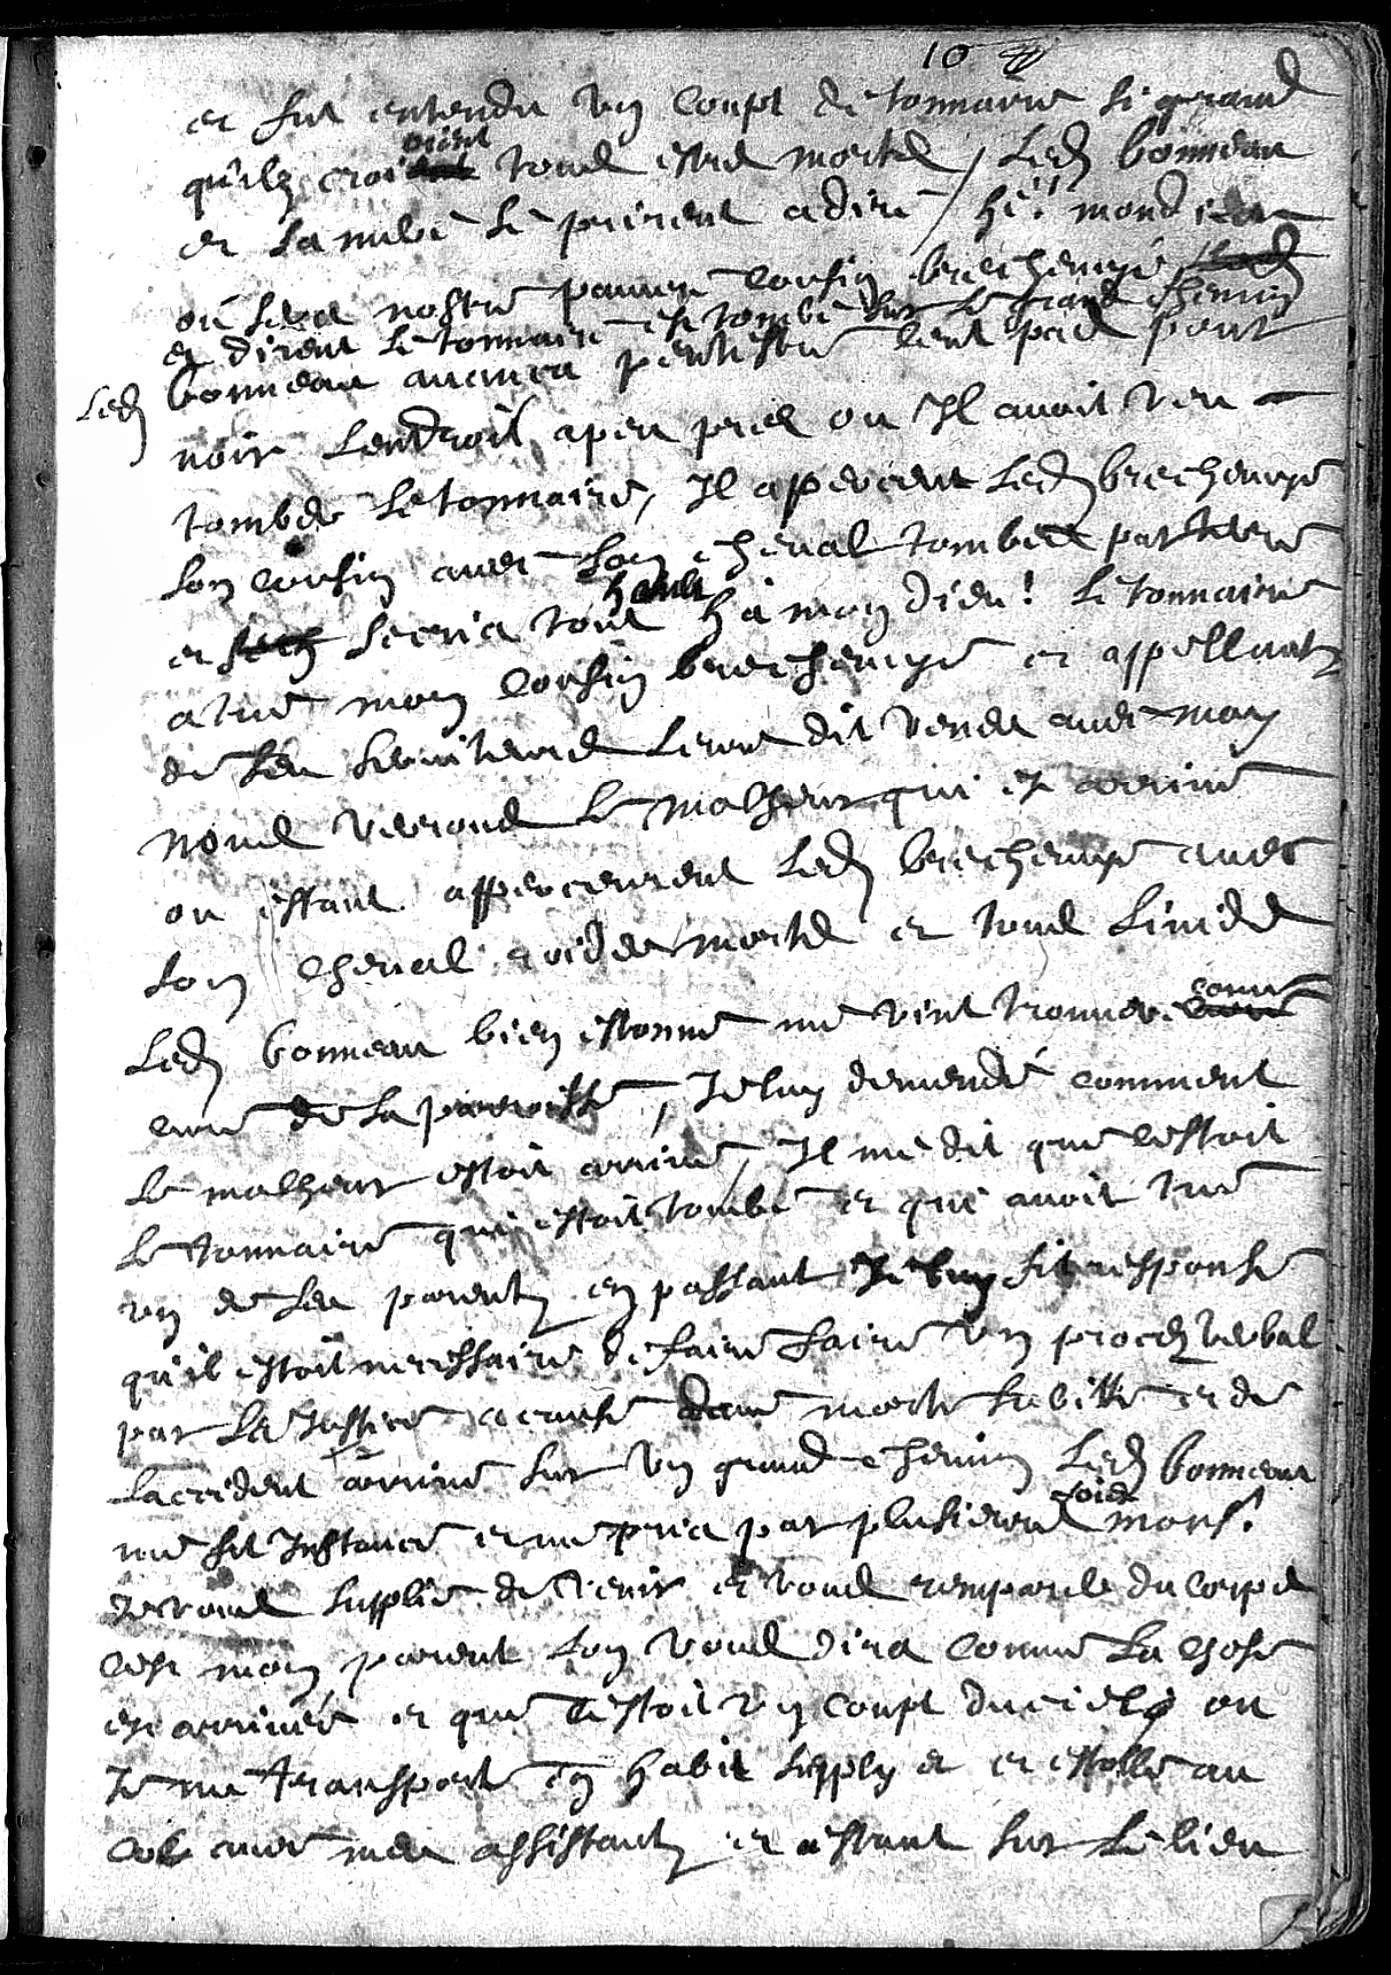 10
et fut entendu un coupt de tonnaire si grand
qu'ilz croioient tous estre mortz / Led bonneau
et la nube se prirent a dire / hé! mond
ou sera nostre pauvre cousin brechemyé
et dirent le tonnaire est tombé sur le grand chemin
Led bonneau avanca peutestre cent pas pour
voir lendroit a peu pres ou Il avoit veu
tomber le tonnaire, Il aperceut Led brechemyé
son cousin avec son cheval tombez par terre
et secria tout hault ha mon dieu! le tonnaire
a tué mon cousin brechemyé et appellant
de ses leur dit venez avec moy
nous verrons le malheur qui est arrivé
ou estant apperceurent Led brechemyé avec
son cheval roides mortz et tous livides
Led bonneau bien estonné me vint trouver comme
curé de la parroisse, Je luy demendé comment
le malheur estoit arrivé, Il me dit que cestoit
le tonnaire qui estoit tombé et qui avoit tué
un de ses parentz en passant Je luy fit responce
qu'il estoit necessaire de faire faire un procez verbal
par la Justice a cause dune mort subitte et de
laccident arrivé sur un grand chemin Led bonneau
me fit Instance et me pria par plusieurs fois monsr
Je vous supplie de venir et vous emparer du corps
cest mon parent lon vous dira comme la chose
est arrivée et que cestoit un coupt du ciel ou
Je me transporté en habit supply et et estolle au
col avec mes assistantz et estant sur le lieu